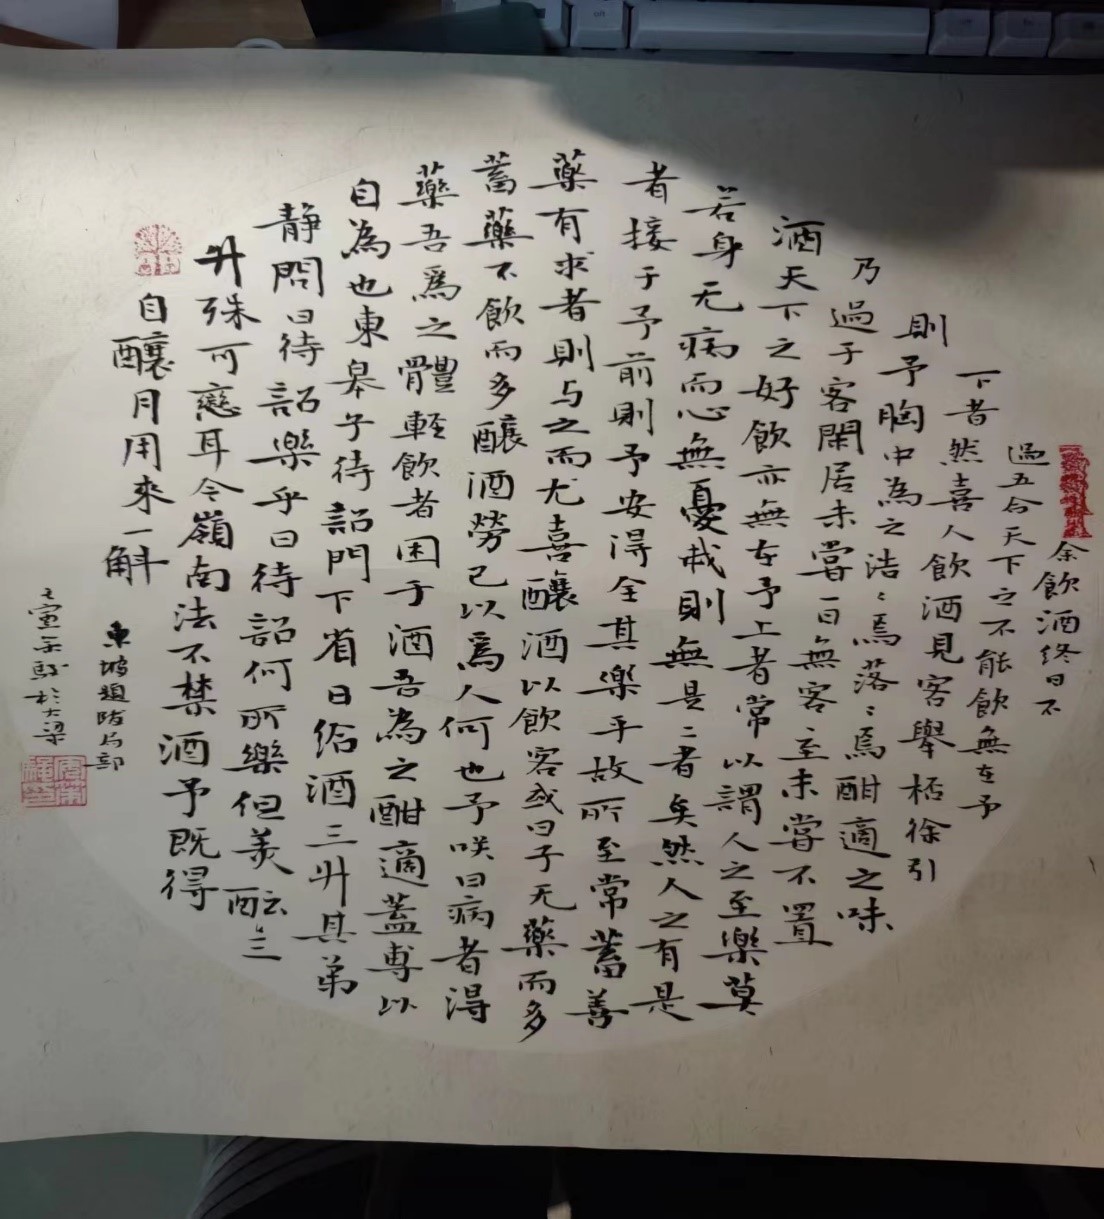 余飲酒終日不
過五合天下之不能飲無在予
下者然喜人飲酒見客舉杯徐引
則予胸中為之浩〻焉落〻焉酣適之味
乃過于客閑居未嘗一日無客至未嘗不置
酒天下之好飲亦無在予上者常以謂人之至樂莫
若身无病而心無憂哉則無是二者矣然人之有是
者接于予前則予安得全其樂乎故所至常蓄善
藥有求者則与之而尤喜釀酒以飲客或曰子无藥而多
蓄藥不飲而多釀酒勞己以為人何也予咲曰病者得
藥吾爲之體輕飲者困于酒吾為之酣適蓋專以
自為也東皋子待詔門下省日給酒三升其弟
靜問曰待詔樂乎曰待詔何所樂但美醖三
升殊可戀耳今嶺南法不禁酒予既得
自釀月用來一斛
東坡題跋
於大梁